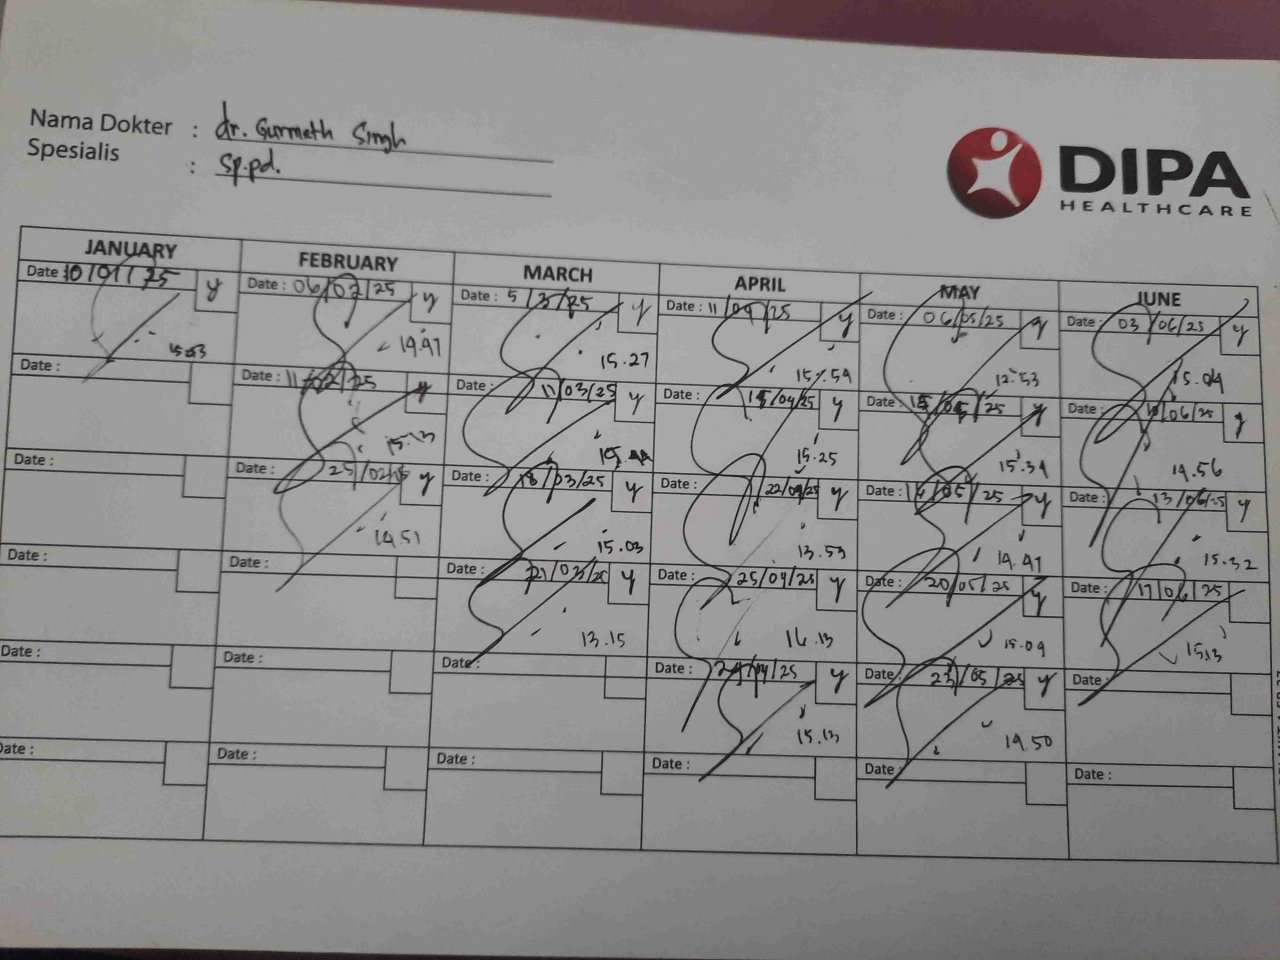 Nama Dokter : dr. Gurmeth Singh
Spesialis : Sp.pd.
DIPA
HEALTHCARE
JANUARY
Date : 10/01/25 y
15.03
Date :
Date :
Date :
Date :
Date :
FEBRUARY
Date : 06/02/25 y
14.47
Date : 11/02/25 y
15.13
Date : 25/02/25 y
14.51
Date :
Date :
Date :
MARCH
Date : 5/3/25 y
15.27
Date : 11/03/25 y
Date : 18/03/25 y
15.03
Date : 21/03/25 y
13.15
Date :
Date :
APRIL
Date : 11/04/25 y
15.59
Date : 15/04/25 y
15.25
Date : 22/04/25 y
13.53
Date : 25/04/25 y
16.13
Date : 29/04/25 y
15.13
Date :
MAY
Date : 06/05/25 y
12.53
Date : /05/25 y
15.34
Date : 14/05/25 y
14.47
Date : 20/05/25 y
15.09
Date : 23/05/25 y
14.50
Date :
JUNE
Date : 03/06/25 y
15.04
Date : 10/06/25 y
14.56
Date : 13/06/25 y
15.32
Date : 17/06/25
15.13
Date :
Date :